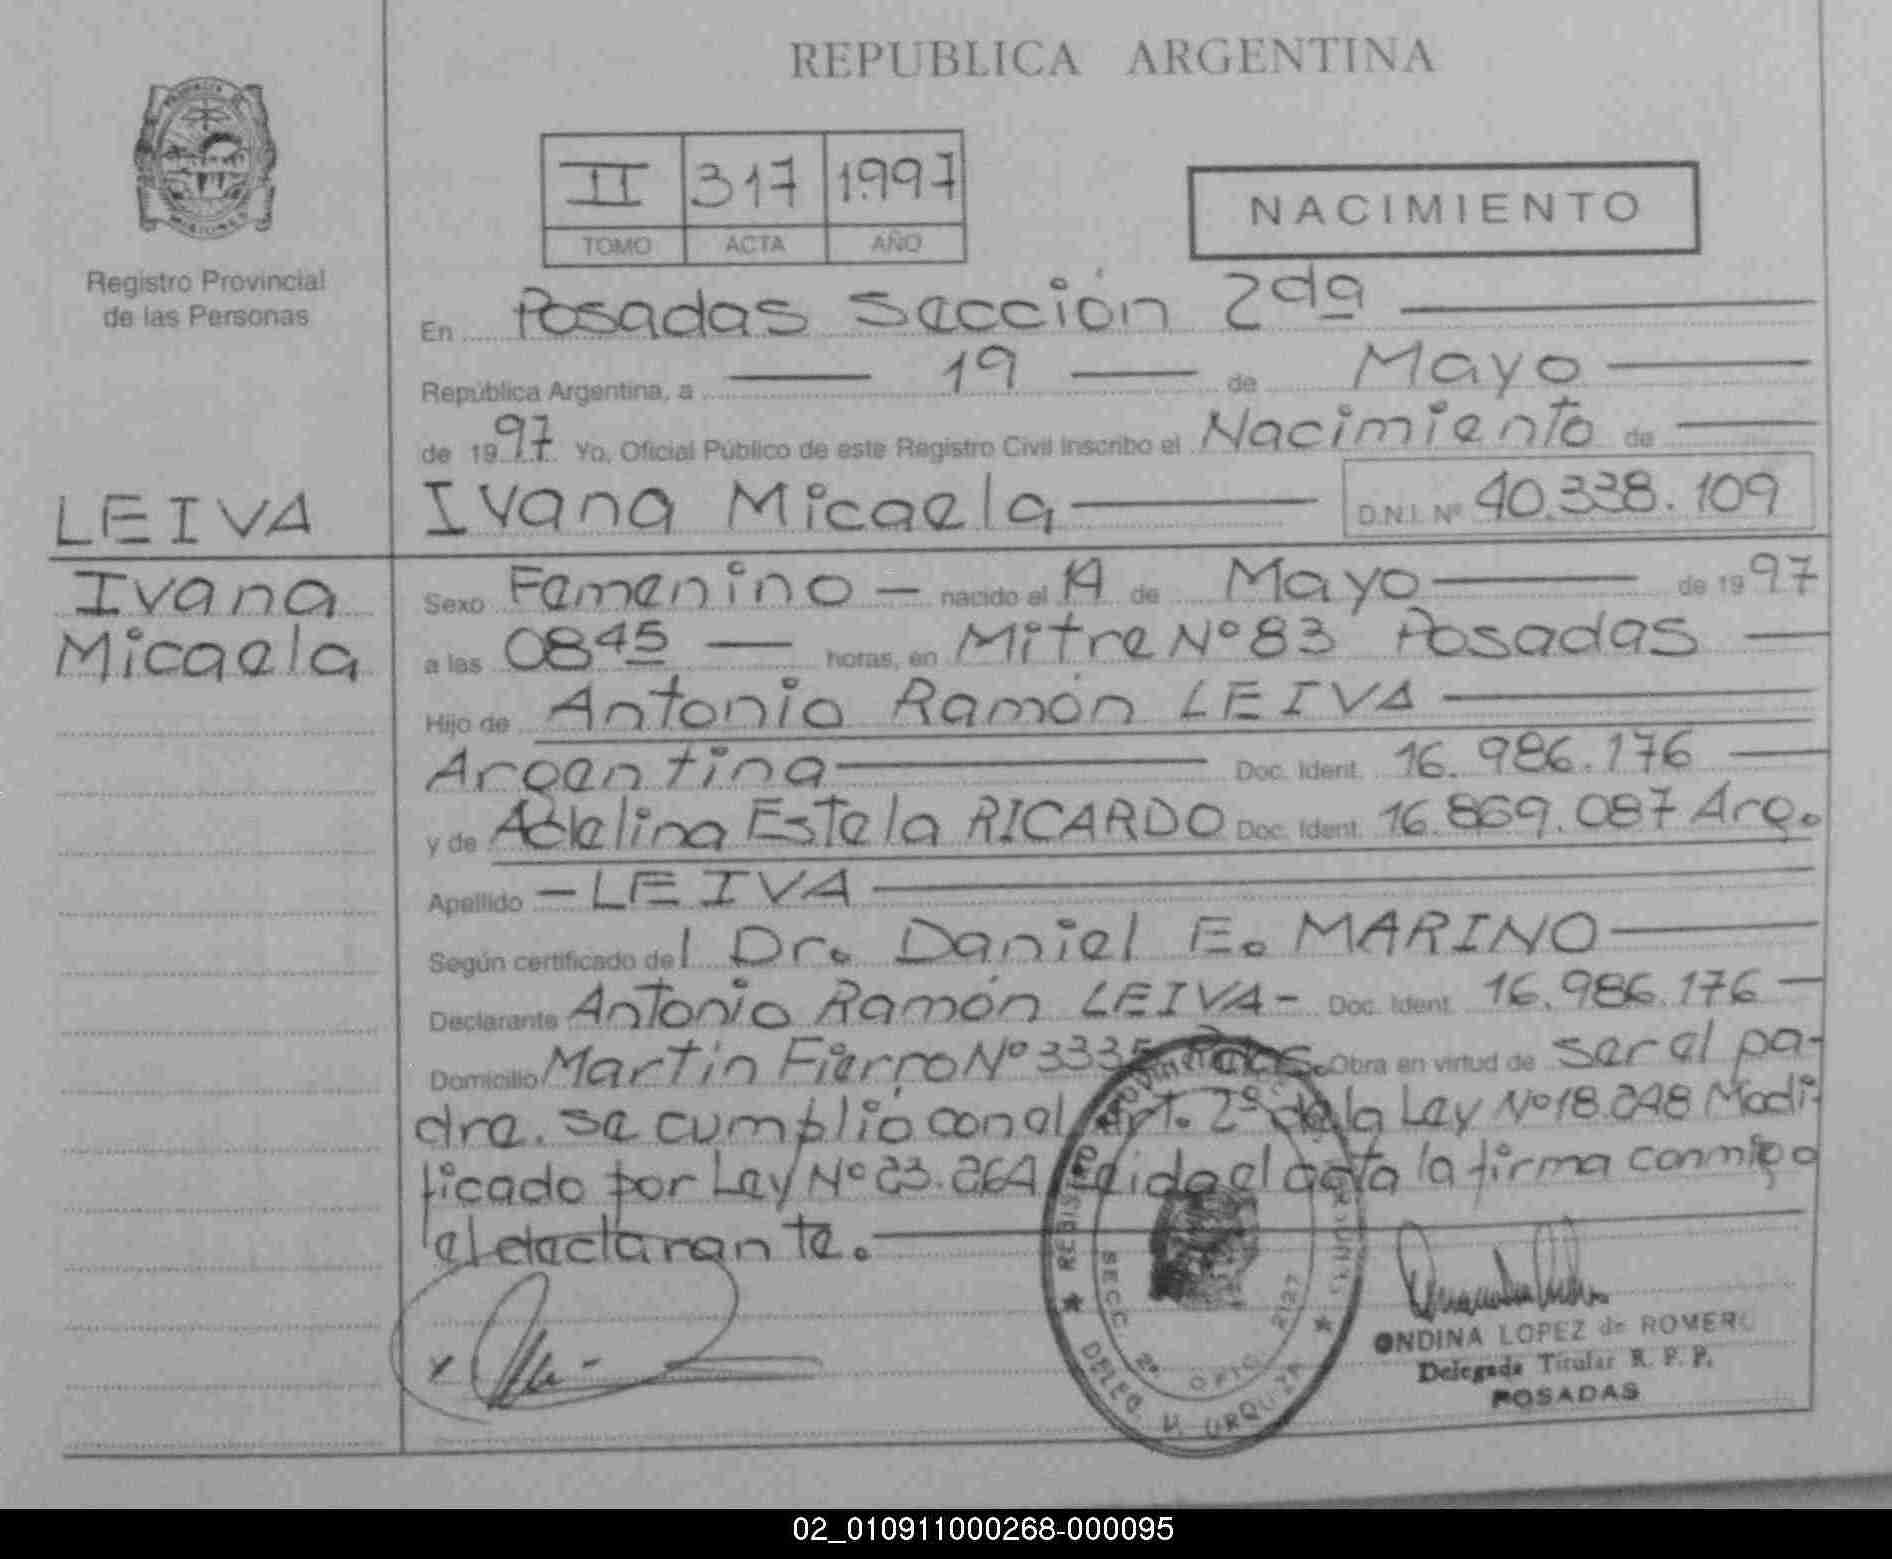 REPUBLICA ARGENTINA
PROVINCIA DE
MISIONES
Registro Provincial
de las Personas
II 317 1.997
TOMO ACTA AÑO
NACIMIENTO
En Posadas Sección 2da
República Argentina, a 19 de Mayo
de 1997 Yo, Oficial Público de este Registro Civil inscribo el Nacimiento de
LEIVA
Ivana Micaela
D.N.I. Nº 40.338.109
Ivana
Micaela
Sexo Femenino nacido el 14 de Mayo de 1997
a las 0845 horas, en Mitre Nº 83 Posadas
Hijo de Antonio Ramón LEIVA
Argentina Doc. Ident. 16.986.176
y de Adelina Estela RICARDO Doc. Ident. 16.869.087 Arg.
Apellido LEIVA
Según certificado del Dr. Daniel E. MARINO
Declarante Antonio Ramón LEIVA - Doc. Ident. 16.986.176
Domicilio Martín Fierro Nº 3335 Pdas. Obra en virtud de ser el pa-
dre. se cumplió con el Art. 2º de la Ley Nº 18.248 Modi-
ficado por Ley Nº 23.264 Leida el acta la firma conmigo
el declarante.
SECC. 2º OFIC. 2127
DELEG. U. URQUIZA
ONDINA LOPEZ de ROMERO
Delegada Titular R. P. P.
POSADAS
02_010911000268-000095